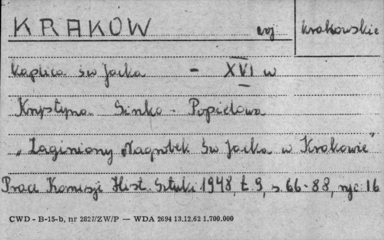 KRAKOW woj krakowskie
Kaplica św Jacka - XVI w
Krystyna Sinko - Popielowa
„Zaginiony Nagrobek Św Jacka w Krakowie"
Prace Komisji Hist. Sztuki 1948, t 9, s. 66-88, ryc 16
CWD - B-15-b, nr 2827/ZW/P — WDA 2694 13.12.62 1.700.000